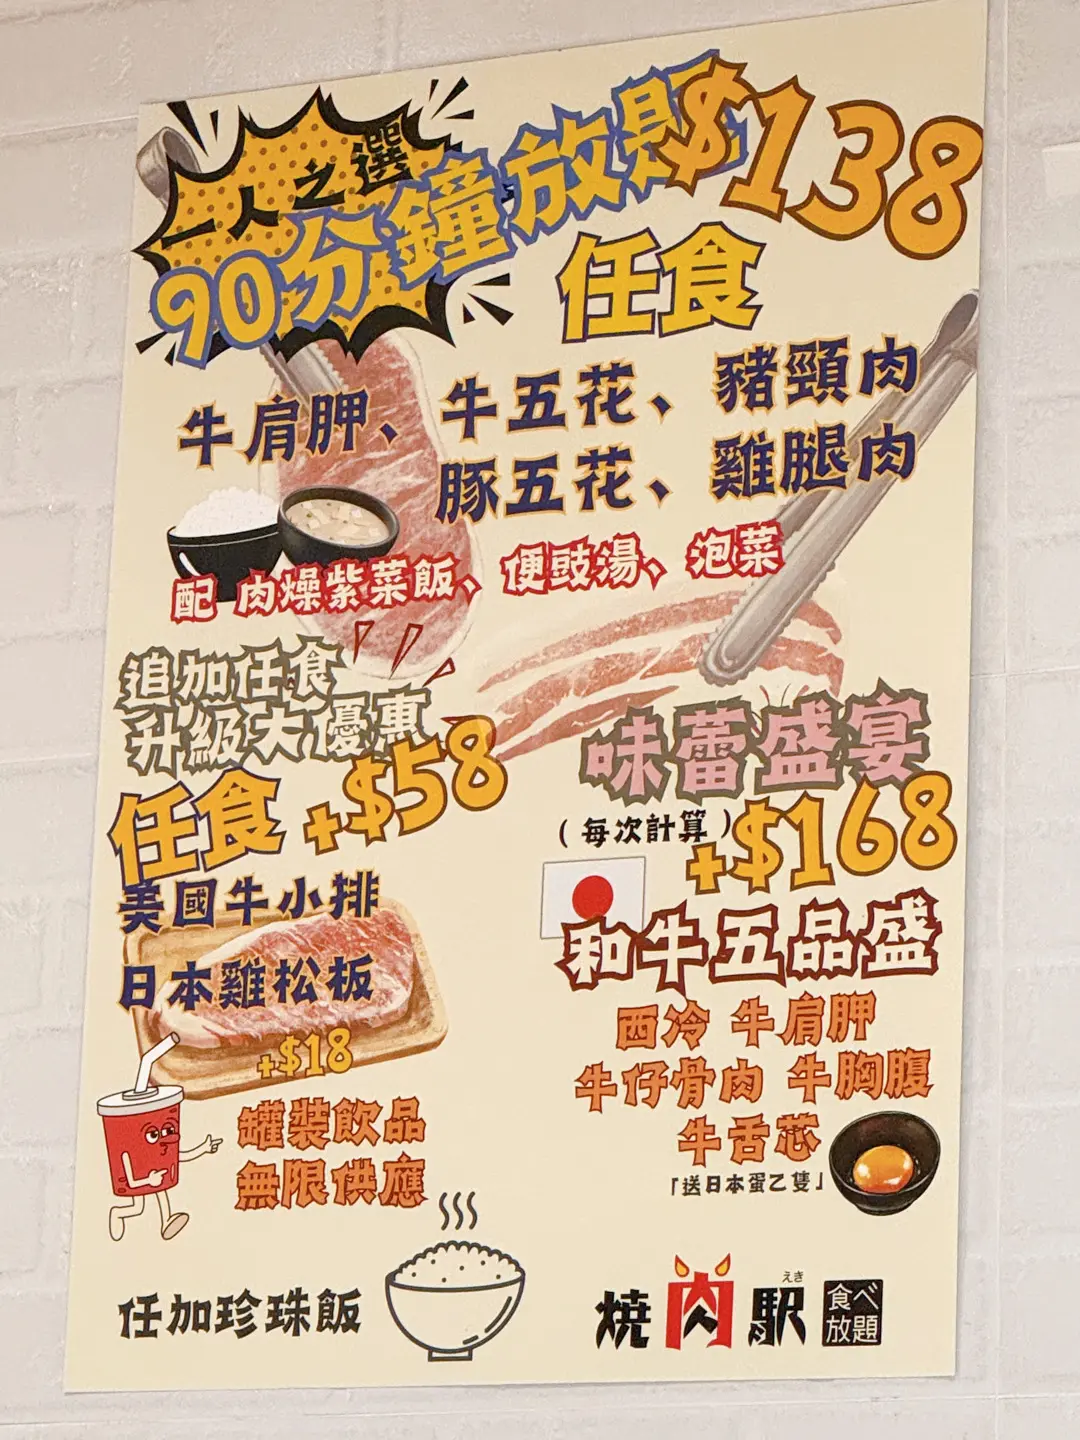 一人之選
90分鐘放題$138
任食
牛肩胛、牛五花、豬頸肉
豚五花、雞腿肉
配 肉燥紫菜飯、便豉湯、泡菜
追加任食
升級大優惠
任食+$58
美國牛小排
日本雞松板
+$18
罐裝飲品
無限供應
味蕾盛宴
(每次計算)+$168
和牛五品盛
西冷 牛肩胛
牛仔骨肉 牛胸腹
牛舌芯
「送日本蛋乙隻」
任加珍珠飯
えき
燒肉駅
食べ
放題